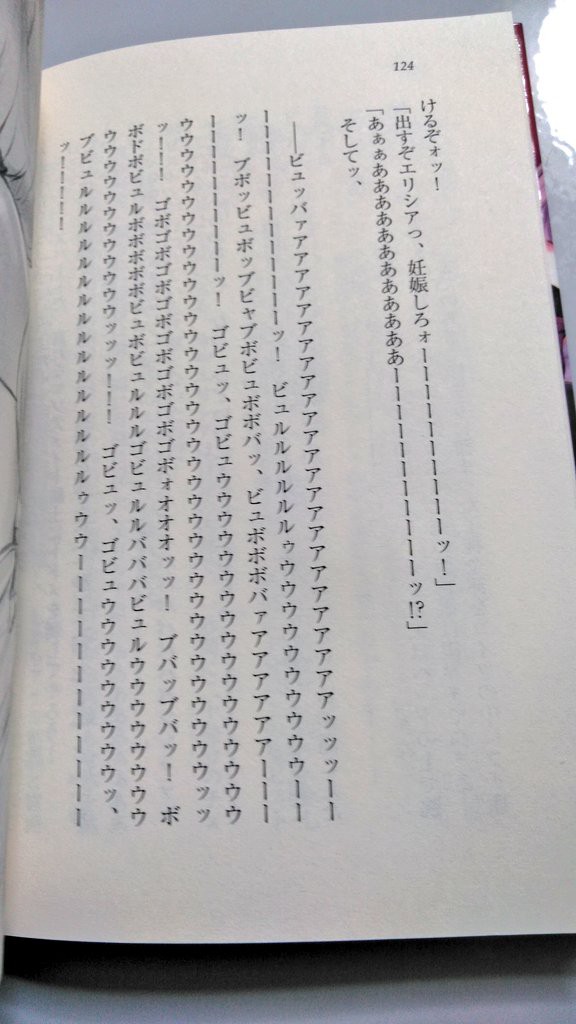 124
けるぞォッ!
「出すぞエリシアっ、妊娠しろォーーーーーーーーーーッ!」
「あぁぁあああああああああああああーーーーーーーーーーッ!?」
そしてッ、
――ビュッバァアアアアアアアアアアアアアアアアアアアアアアアアアアアアッッッーー
ーーーーーーーーーーーーーッ! ビュルルルルルルゥウウウウウウウウウウウーー
ッ! ブボッビュボッブビャブボビュボボバッ、ビュボボボバァアアアアアアアーーー
ーーーーーーーーーッ! ゴビュッ、ゴビュウウウウウウウウウウウウウウウウウウウ
ウウウウウウウウウウウウウウウウウウウウウウウウウウウウウウウウウウウウウッッ
ッ!!! ゴボゴボゴボゴボゴボゴボゴボゴボォオオオッッ! ブバップバッ! ボ
ボドボビュルボボボボボビュボビュルルルゴビュルルバババビュルウウウウウウウウウ
ウウウウウウウウウウウウウッッッ!!! ゴビュッ、ゴビュウウウウウウウウウウッ、
ブビュルルルルルルルルルルルルルルルルルルゥウウーーーーーーーーーーーーーー
ッ!!!!!